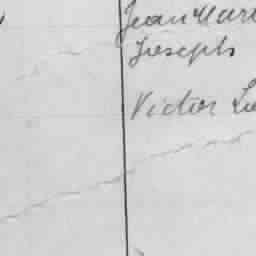 Jean Mari
Joseph
Victor Lu